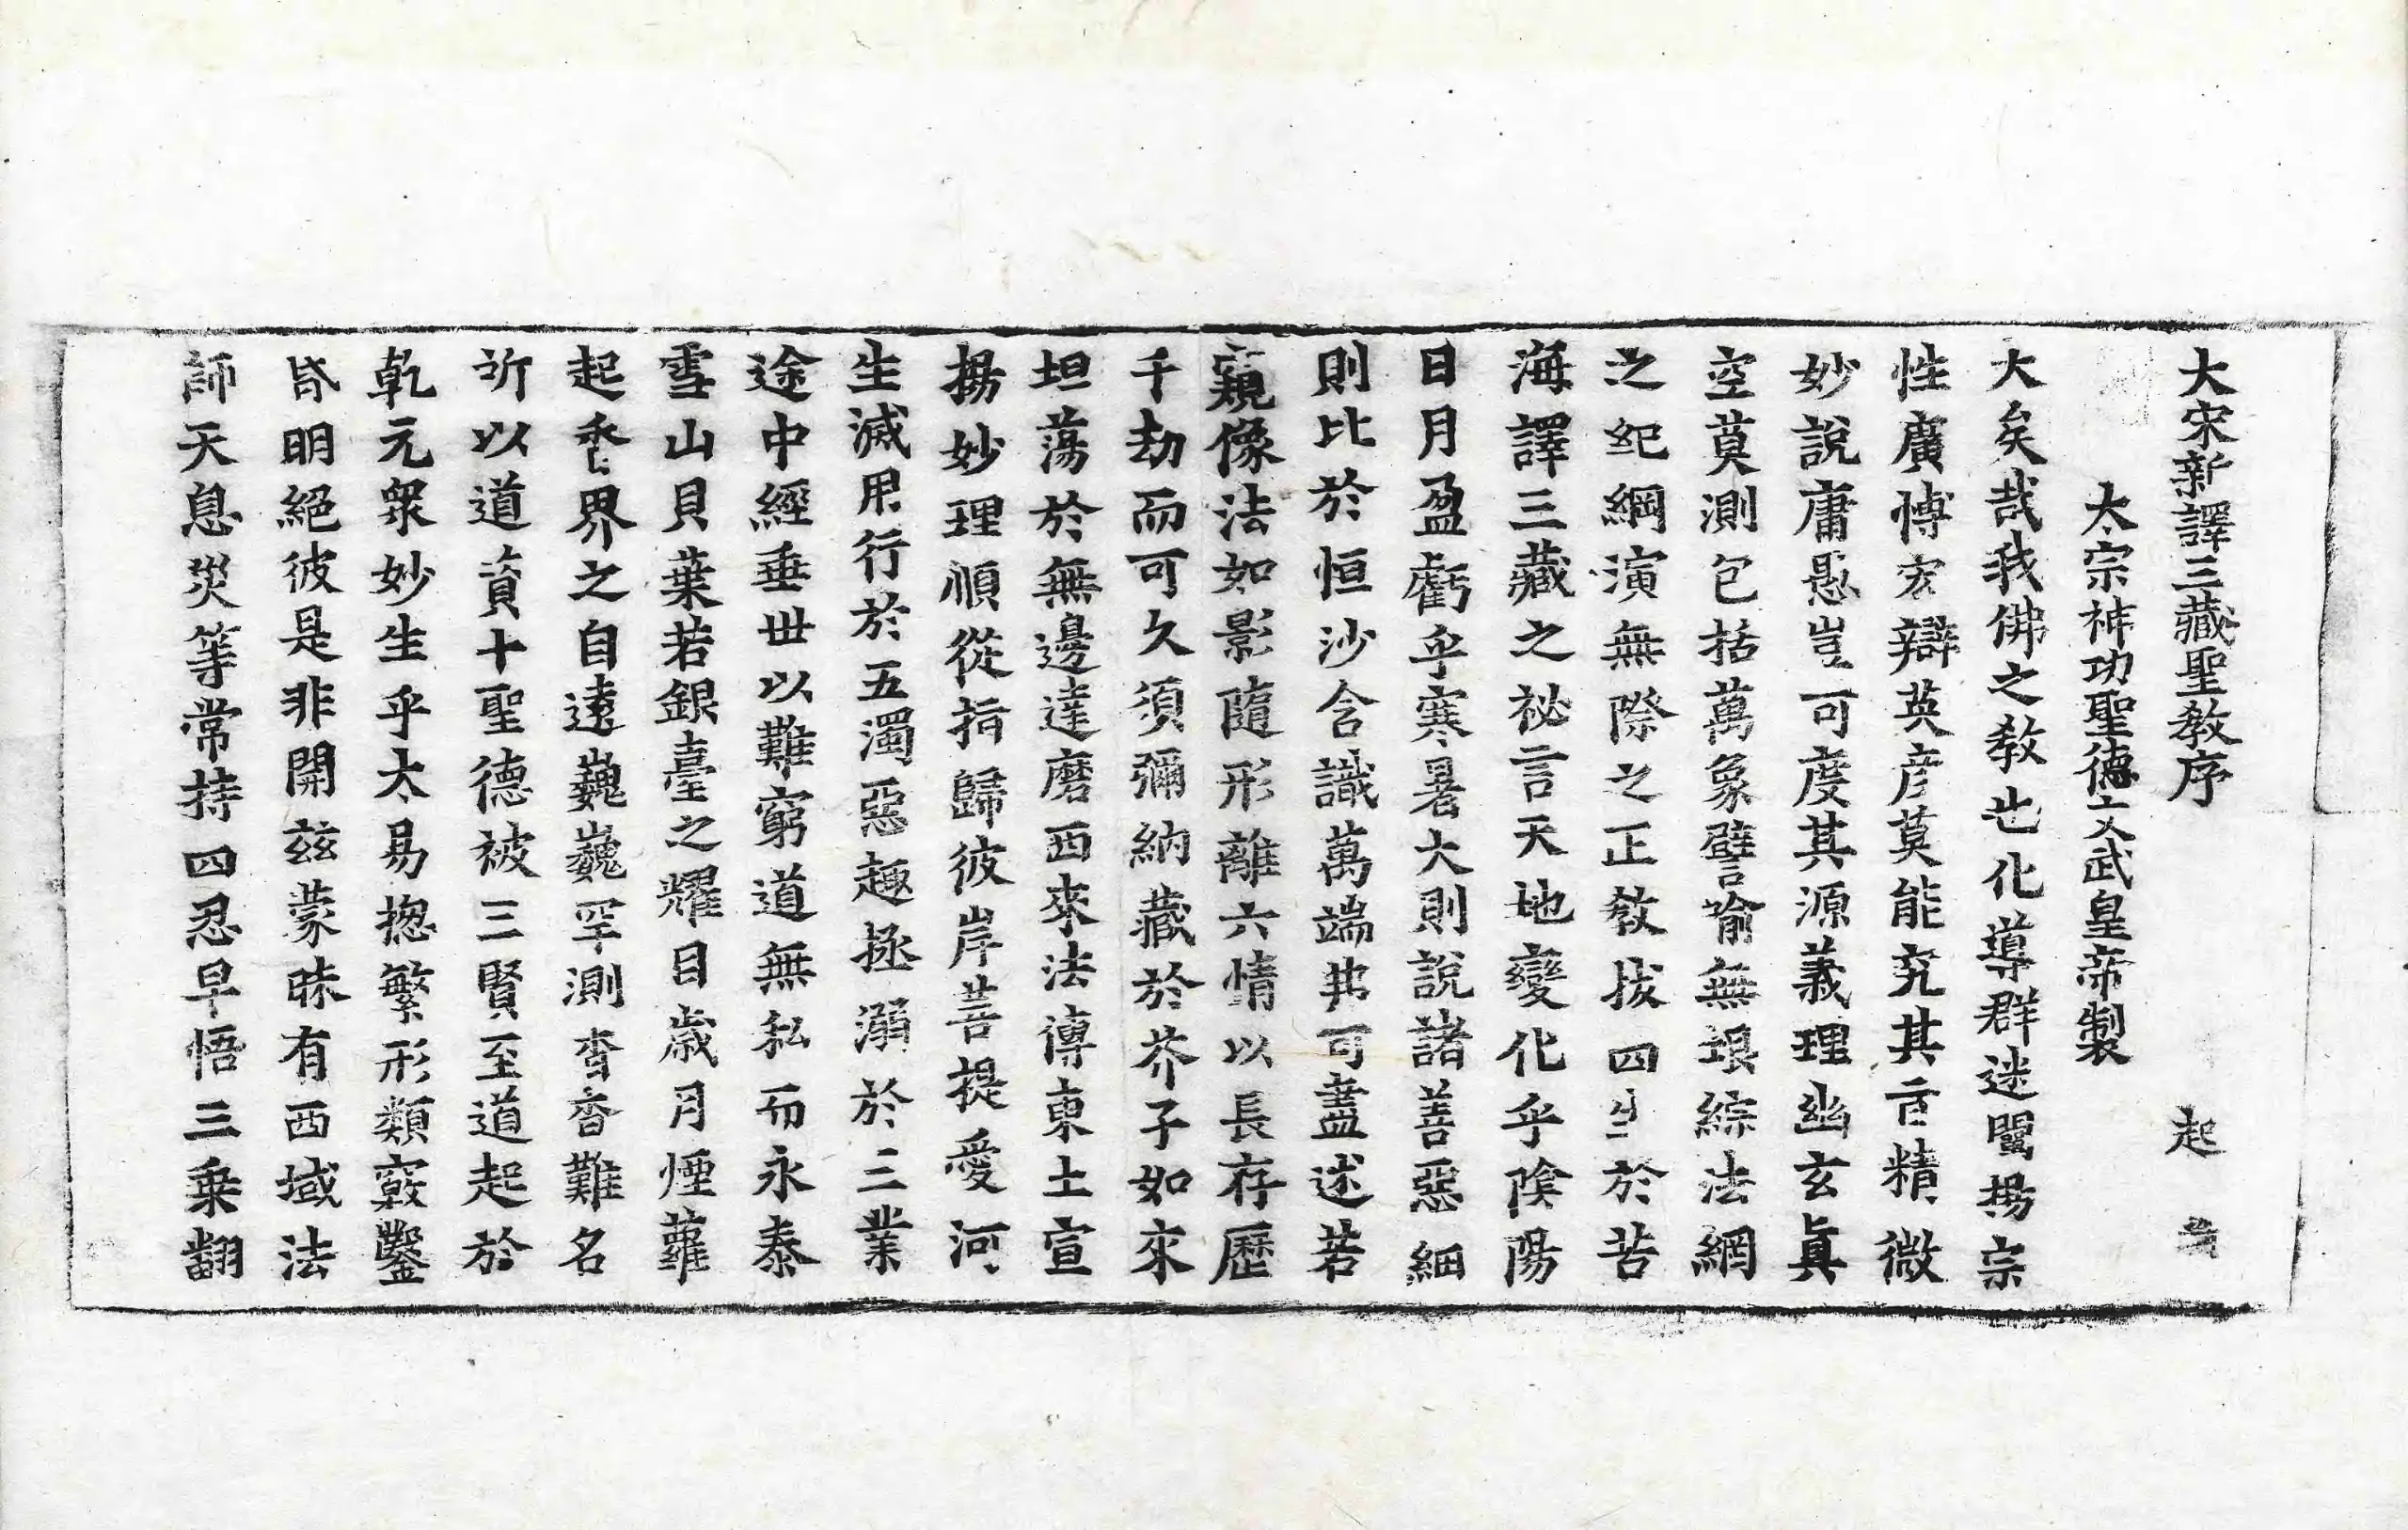 大宋新譯三藏聖教序 起
太宗神功聖德文武皇帝製
大矣哉我佛之教也化導群迷闡揚宗
性廣博宏辯英彦莫能究其旨精微
妙說庸愚豈可度其源義理幽玄眞
空莫測包括萬象譬喻無垠綜法網
之紀綱演無際之正教拔四生於苦
海譯三藏之祕言天地變化乎陰陽
日月盈虧乎寒暑大則說諸善惡細
則比於恒沙含識萬端弗可盡述若
窺像法如影隨形離六情以長存歷
千劫而可久須彌納藏於芥子如來
坦蕩於無邊達磨西來法傳東土宣
揚妙理順從指歸彼岸菩提愛河
生滅用行於五濁惡趣拯溺於三業
途中經垂世以難窮道無私而永泰
雪山貝葉若銀臺之耀目歲月煙蘿
起香界之自遠巍巍罕測杳杳難名
所以道資十聖德被三賢至道起於
乾元衆妙生乎太易揔繁形類竅鑿
昏明絕彼是非開兹蒙昧有西域法
師天息災等常持四忍早悟三乗翻